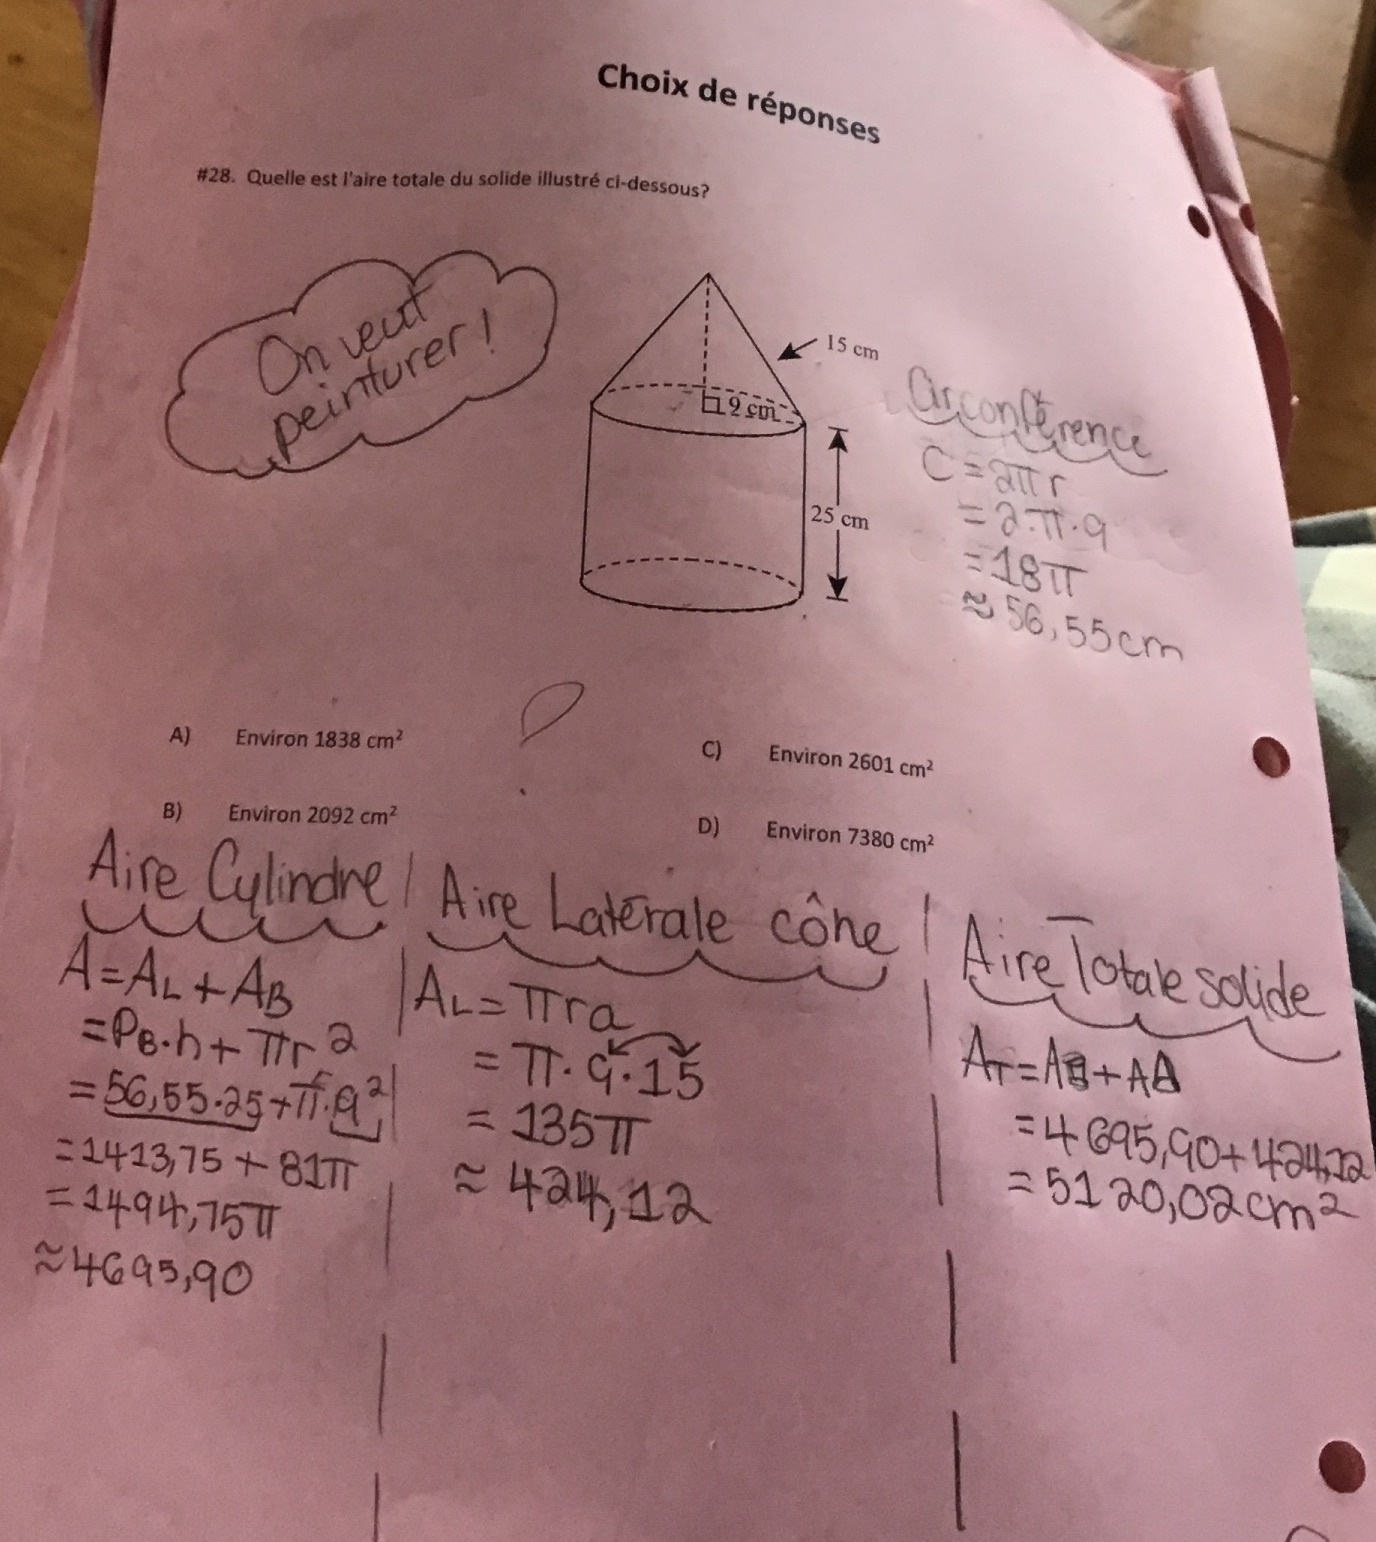 Choix de réponses
#28. Quelle est l'aire totale du solide illustré ci-dessous?
On veut
peinturer!
15 cm
9 cm
25 cm
Circonférence
C = 2πr
= 2·π·9
= 18π
≈ 56,55cm
A) Environ 1838 cm²
C) Environ 2601 cm²
B) Environ 2092 cm²
D) Environ 7380 cm²
Aire Cylindre
A = AL + AB
= PB·h + πr²
= 56,55·25 + π·9²
= 1413,75 + 81π
= 1494,75π
≈ 4695,90
Aire Latérale cône
AL = πra
= π·9·15
= 135π
≈ 424,12
Aire Totale solide
AT = A + A
= 4695,90 + 424,12
= 5120,02cm²